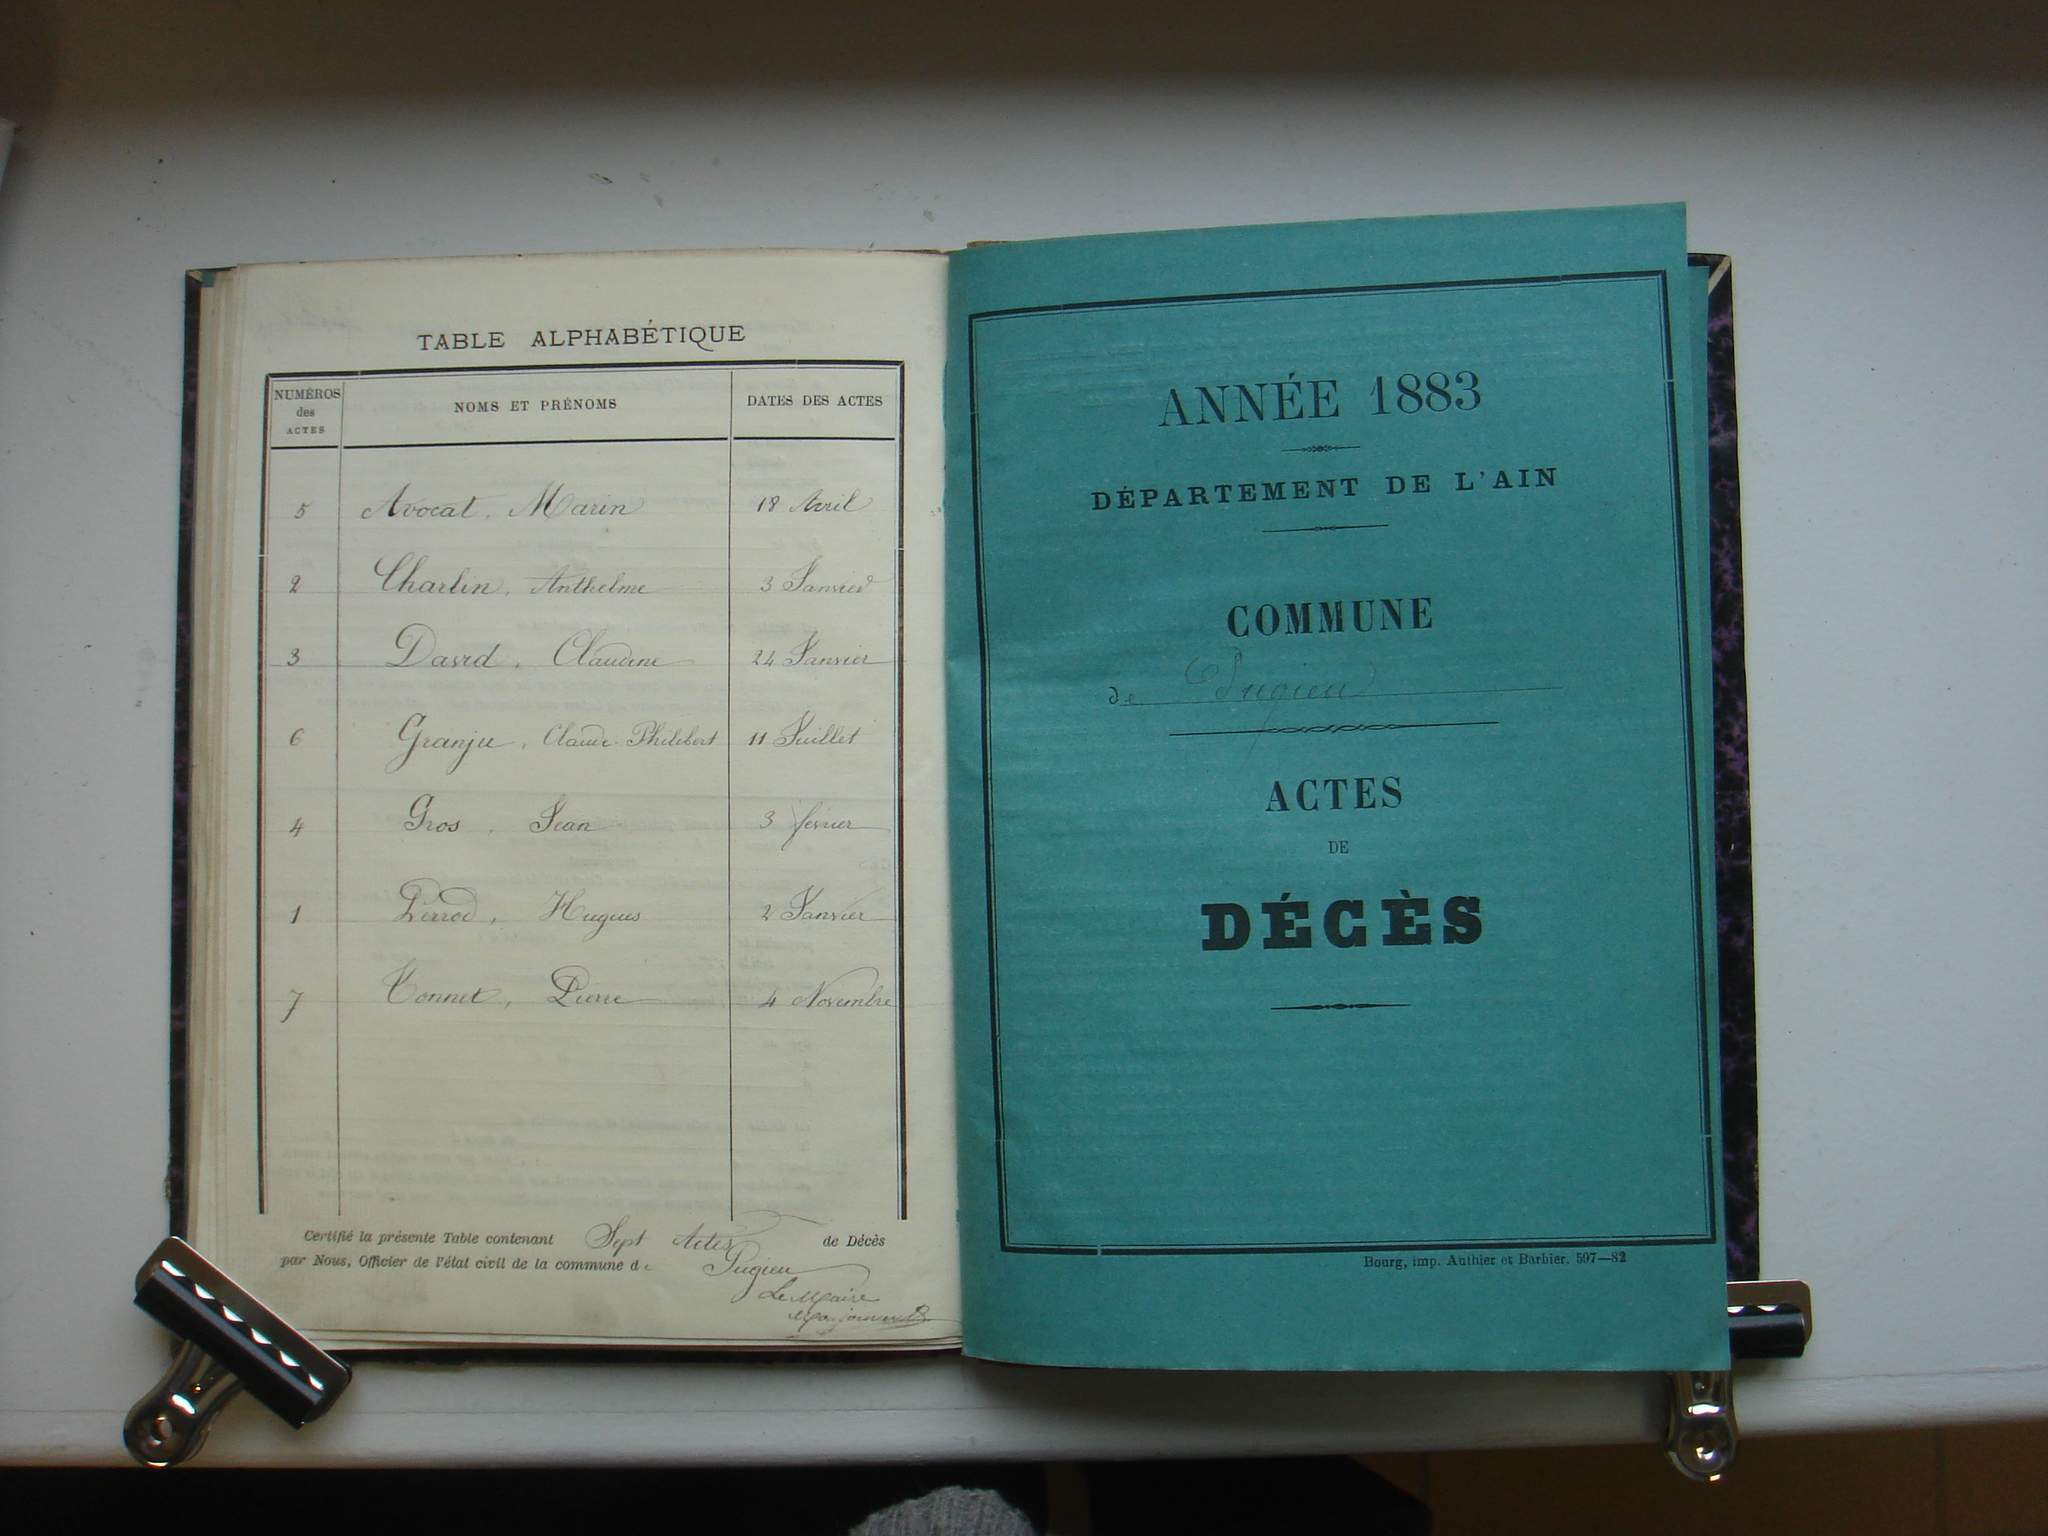 TABLE ALPHABÉTIQUE
NUMÉROS des ACTES
NOMS ET PRÉNOMS
DATES DES ACTES
5 Avocat, Marin 18 Avril
2 Charlin, Anthelme 3 Janvier
3 David, Claudine 24 Janvier
6 Granju, Claude-Philibert 11 Juillet
4 Gros, Jean 3 février
1 Perrod, Hugues 2 Janvier
7 Tonnet, Pierre 4 Novembre
Certifié la présente Table contenant Sept Actes de Décès
par Nous, Officier de l'état civil de la commune de Pugieu
Le Maire
ANNÉE 1883
DÉPARTEMENT DE L'AIN
COMMUNE
de Pugieu
ACTES
DE
DÉCÈS
Bourg, imp. Authier et Barbier. 597—82